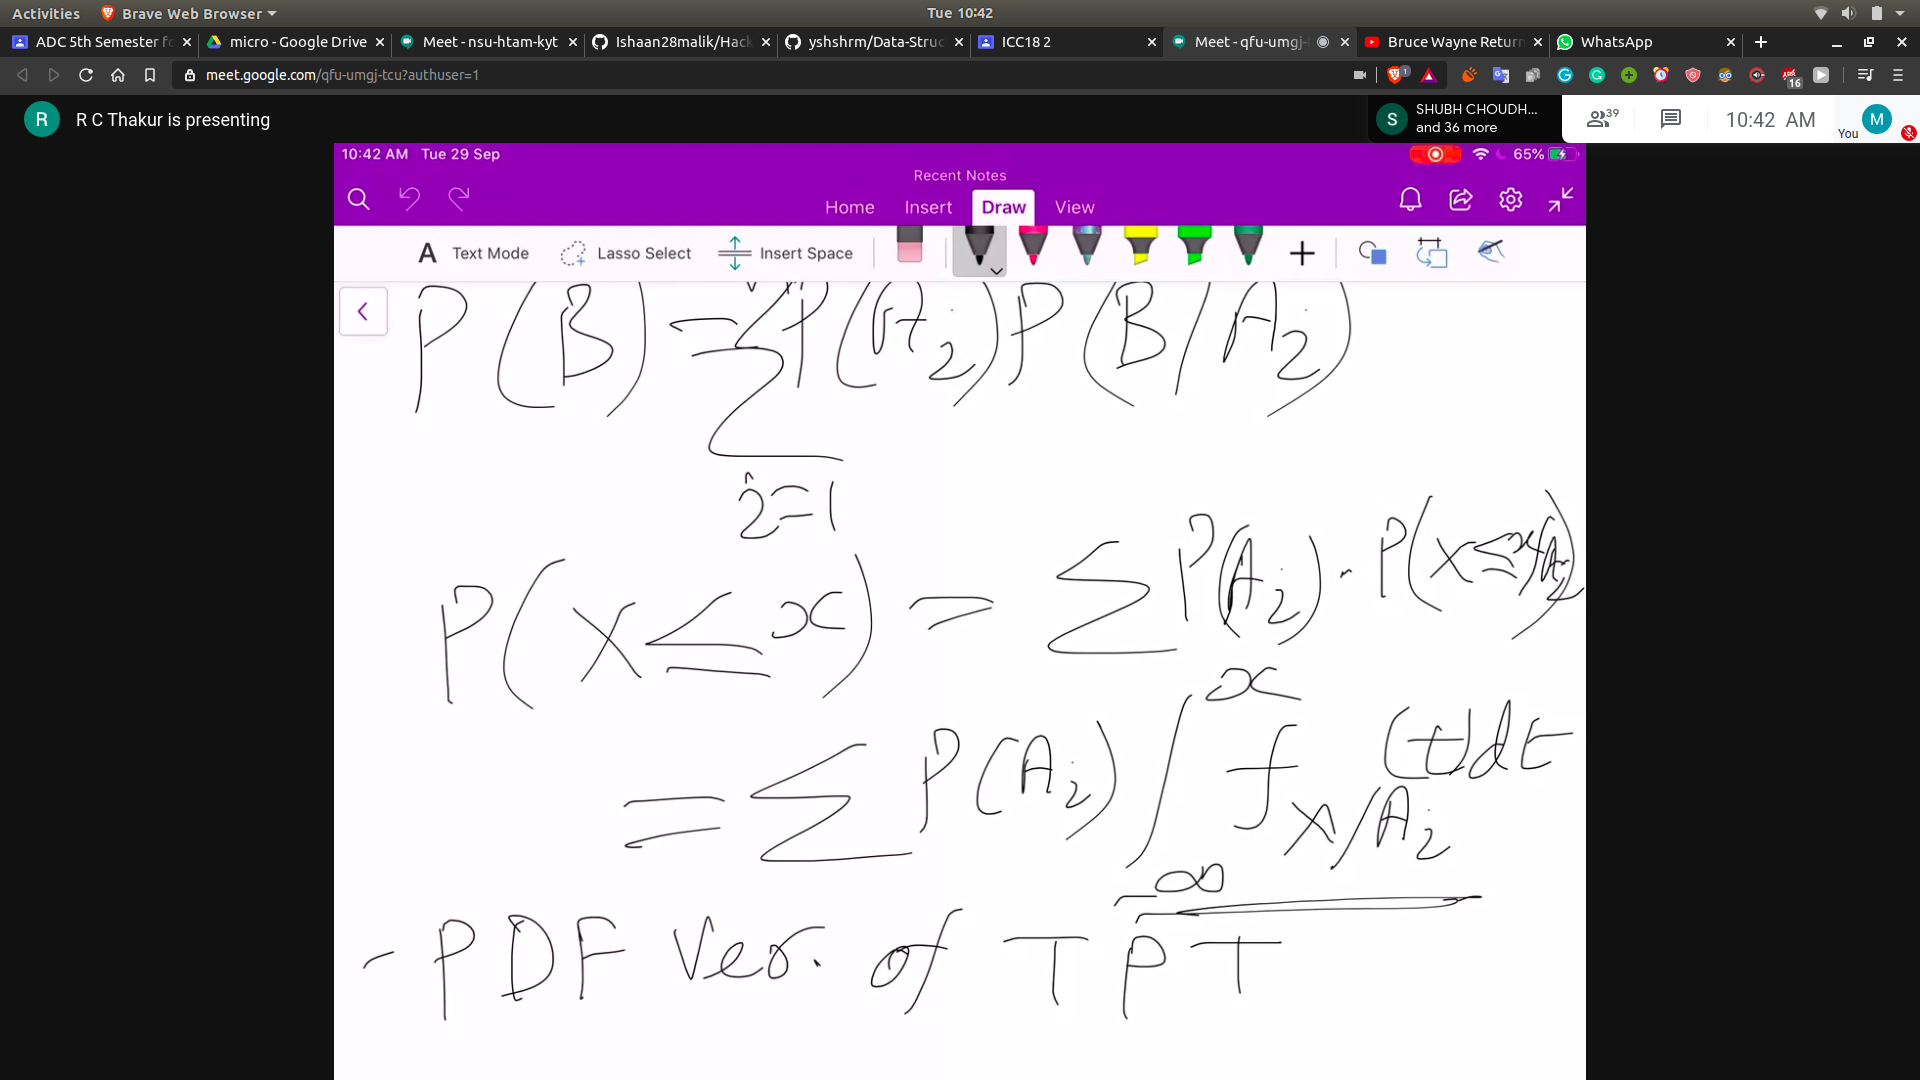 Activities Brave Web Browser Tue 10:42
ADC 5th Semester fo micro - Google Drive Meet - nsu-htam-kyt Ishaan28malik/Hack yshshrm/Data-Struc ICC18 2 Meet - qfu-umgj- Bruce Wayne Return WhatsApp
meet.google.com/qfu-umgj-tcu?authuser=1 1 16
R R C Thakur is presenting
S SHUBH CHOUDH...
and 36 more
39 10:42 AM You M
10:42 AM Tue 29 Sep 65%
Recent Notes
Home Insert Draw View
A Text Mode Lasso Select Insert Space
P(B) = Σ P(Ai) P(B/Ai)
i=1
P(X≤x) = Σ P(Ai) . P(X≤x/Ai)
= Σ P(Ai) ∫ x -∞ f X/Ai (t)dt
- PDF Ver. of TPT